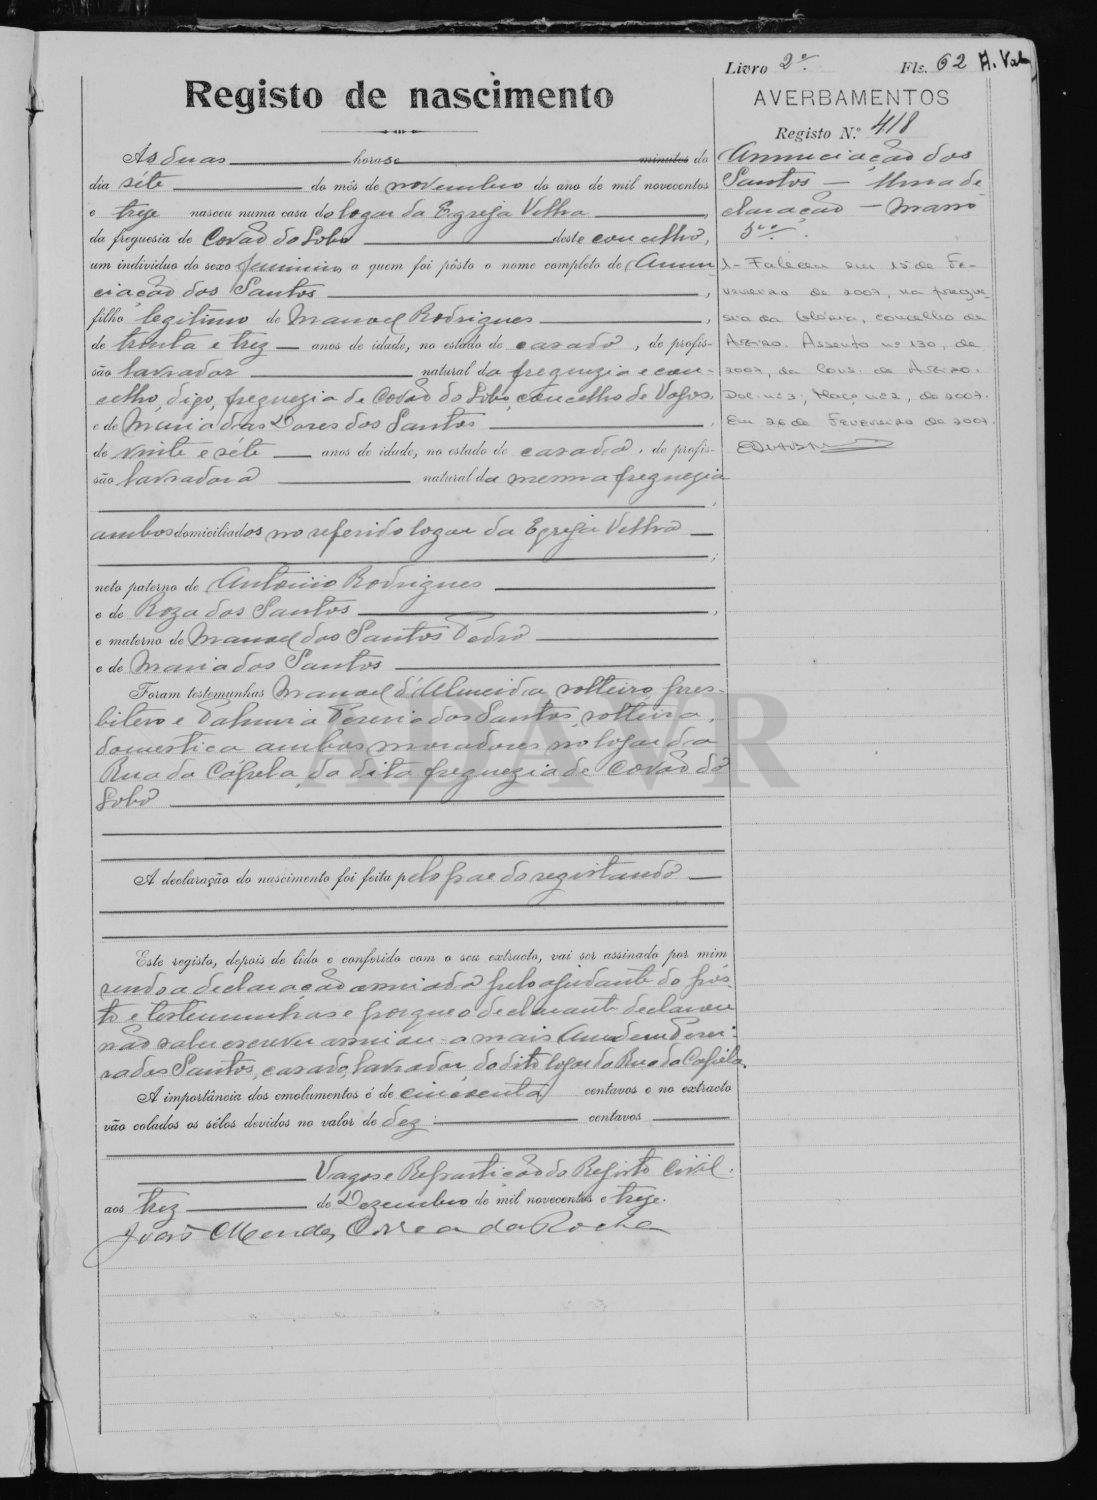 Livro 2º. Fls. 62
Registo de nascimento
AVERBAMENTOS
Registo N.º 418
Ás duas horas e minutos do
dia séte do mês de novembro do ano de mil novecentos
e treze nasceu numa casa do logar da Egreja Velha,
da freguesia de Covão do Lobo deste concelho,
um individuo do sexo feminino a quem foi pôsto o nome completo de Annun
ciação dos Santos,
filho legitimo de Manoel Rodrigues,
de trinta e trez anos de idade, no estado de casado, de profis-
são lavrador natural da freguezia e con-
celho, digo, freguezia de Covão do Lobo, concelho de Vagos,
e de Maria das Dores dos Santos,
de vinte e séte anos de idade, no estado de casada, de profis-
são lavradora natural da mesma freguezia
,
ambos domiciliados no referido logar da Egreja Velha
;
neto paterno de Antonio Rodrigues
e de Roza dos Santos,
e materno de Manoel dos Santos Pedro
e de Maria dos Santos
Foram testemunhas Manoel d'Almeida, solteiro, pres-
bitero e Palmira Pereria dos Santos, solteira,
domestica ambos moradores no logar da
Rua da Capela, da dita freguezia de Covão do
Lobo
A declaração do nascimento foi feita pelo pae do registando
Este registo, depois de lido e conferido com o seu extracto, vai ser assinado por mim
sendo a declaração assinada pelo ajudante do pôs-
to e testemunhas e porque o declarante declarou
não saber escrever assinou-a mais Amadeu Perei-
ra dos Santos, casado, lavrador do dito logar da Rua da Capela.
A importância dos emolumentos é de cincoenta centavos e no extracto
vão colados os sêlos devidos no valor de dez centavos
Vagos e Repartição do Registo Civil.
aos trez de Dezembro de mil novecentos e treze.
João Mendes Correa da Rocha
Annunciação dos
Santos — Uma de
claração — Masso
1 - Faleceu em 15 de Fe-
vereiro de 2007, na fregue-
sia da Glória, concelho de
Aveiro. Assento nº 130, de
2007, da Cons. de Aveiro.
Doc. nº 3, Maço nº 2, de 2007.
Em 26 de Fevereiro de 2007.
ADAVR